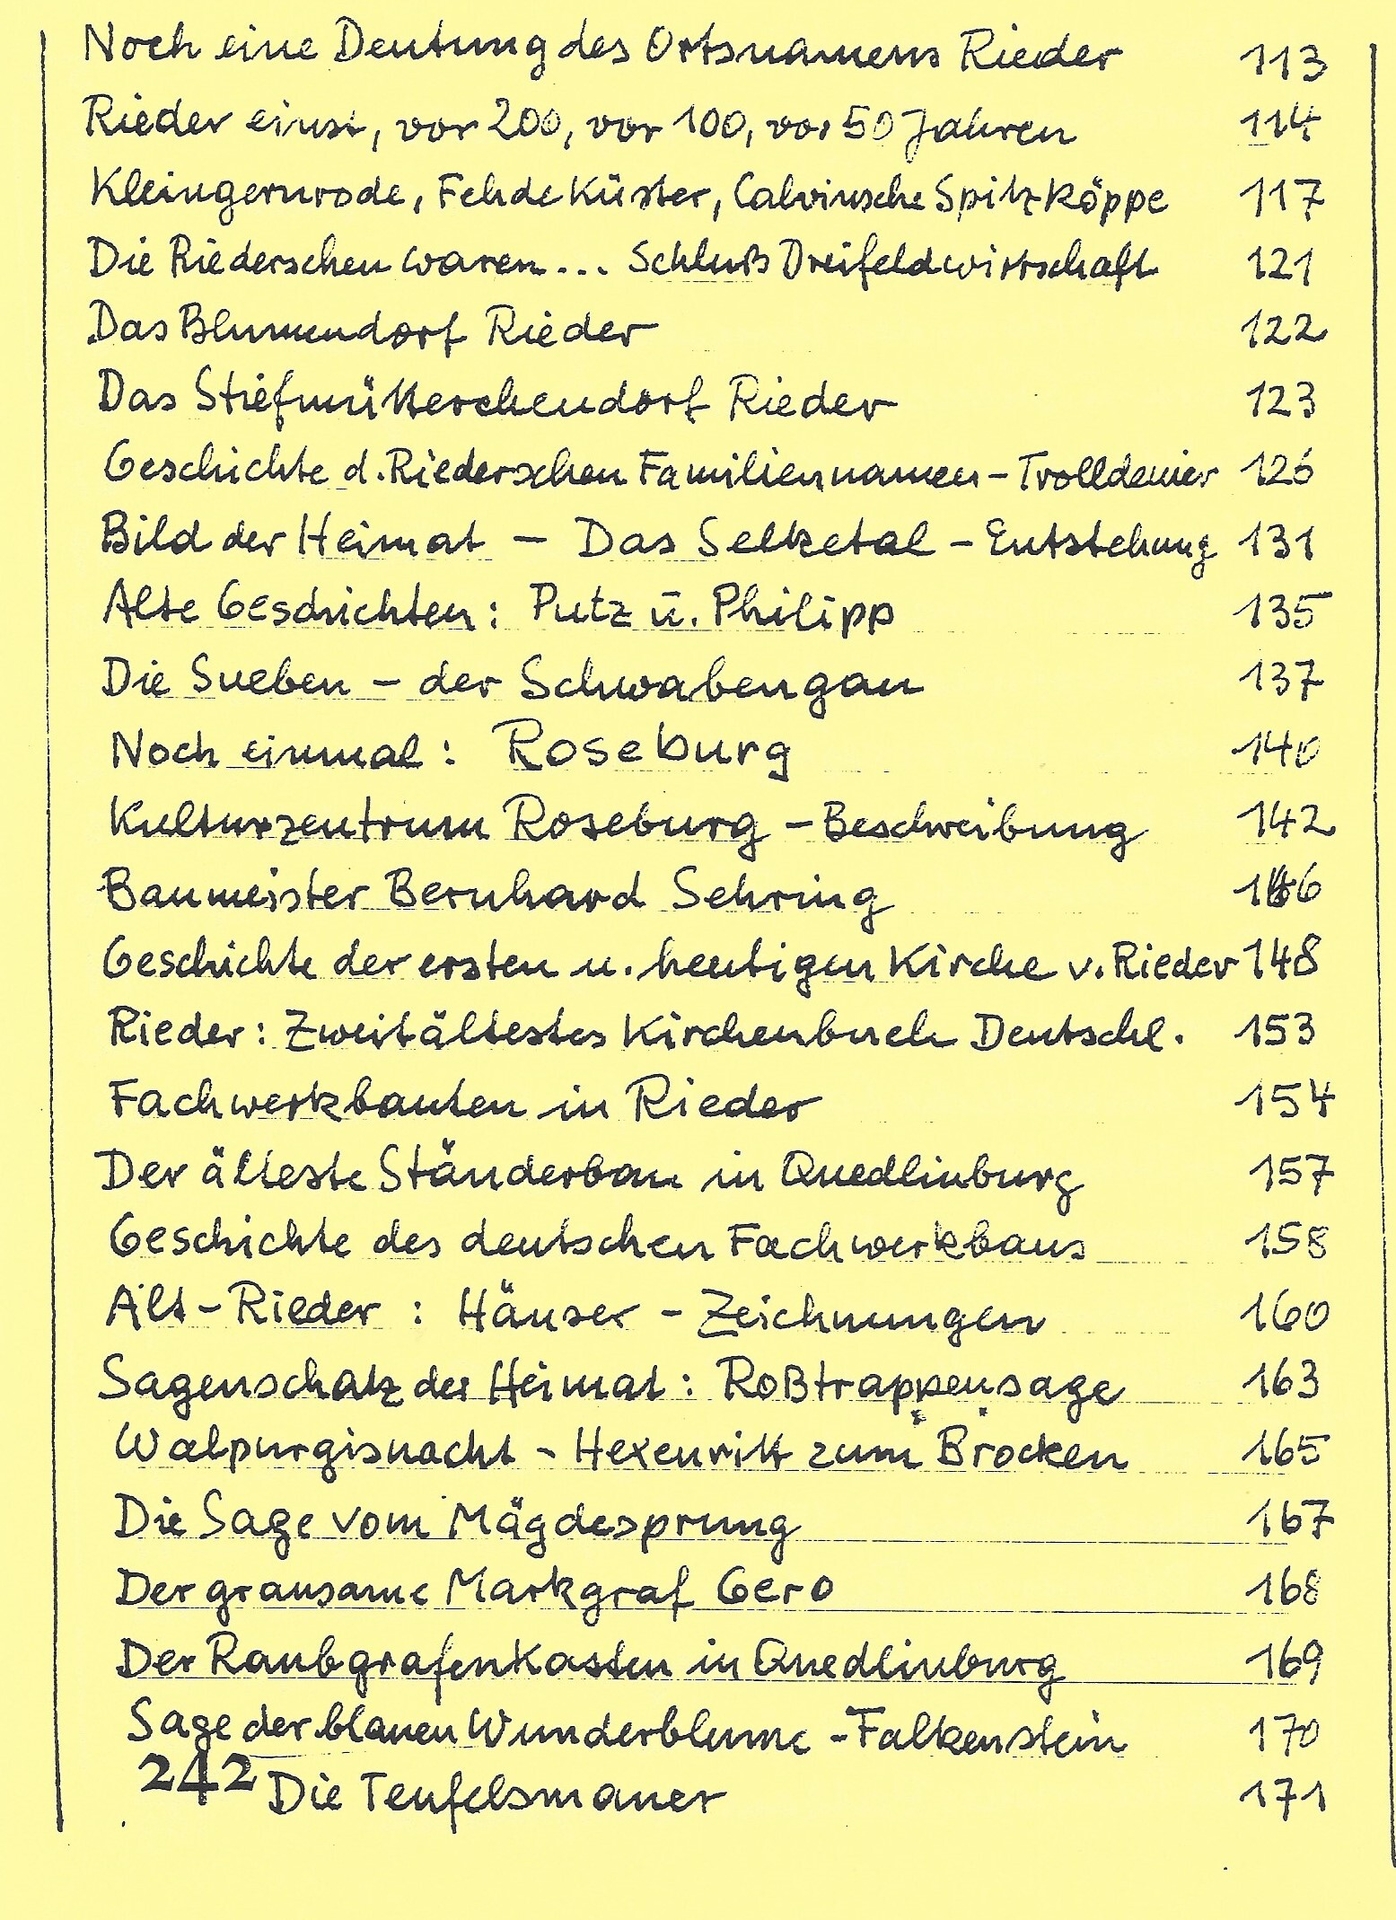 Noch eine Deutung des Ortsnamens Rieder 113
Rieder einst, vor 200, vor 100, vor 50 Jahren 114
Kleingernrode, Fehde Küster, Calvinsche Spitzköppe 117
Die Riederschen waren... Schluß Dreifeldwirtschaft 121
Das Blumendorf Rieder 122
Das Stiefmütterchendorf Rieder 123
Geschichte d. Riederschen Familiennamen - Trolldenier 126
Bild der Heimat - Das Selketal - Entstehung 131
Alte Geschichten: Putz u. Philipp 135
Die Sueben - der Schwabengau 137
Noch einmal: Roseburg 140
Kulturzentrum Roseburg - Beschreibung 142
Baumeister Bernhard Sehring
Geschichte der ersten u. heutigen Kirche v. Rieder 148
Rieder: Zweitältestes Kirchenbuch Deutschl. 153
Fachwerkbauten in Rieder 154
Der älteste Ständerbau in Quedlinburg 157
Geschichte des deutschen Fachwerkbaus 158
Alt-Rieder: Häuser - Zeichnungen 160
Sagenschatz der Heimat: Roßtrappensage 163
Walpurgisnacht - Hexenritt zum Brocken 165
Die Sage vom Mägdesprung 167
Der grausame Markgraf Gero 168
Der Raubgrafenkasten in Quedlinburg 169
Sage der blauen Wunderblume - Falkenstein 170
242 Die Teufelsmauer 171